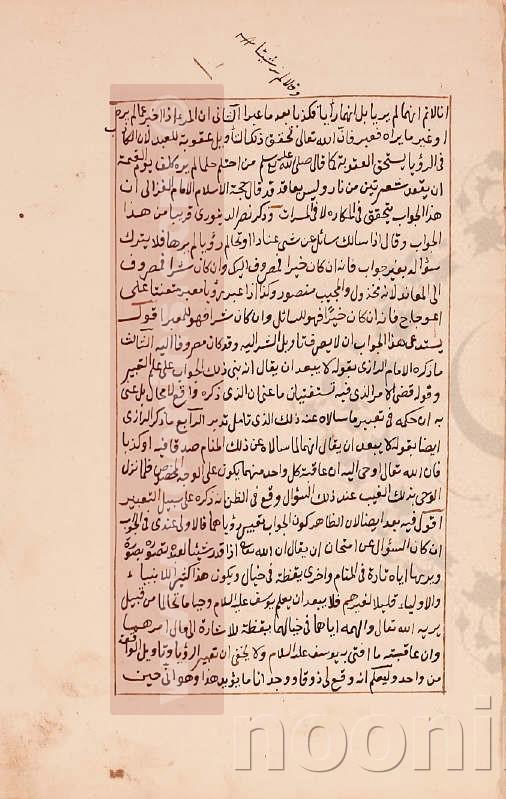 وقالا لم نر شيئا
انا لانم انهما لم يريا بل انهما رأيا فكذبا بعد ما عبرا الثانى ان المرء اذا اخبر عما لم يره
او غير ما يراه فعبر فان الله تعالى تحقق ذلك التأويل عقوبة للعبد لان الكاذب
فى الرؤيا يستحق العقوبة كما قال صلى الله عليه وسلم من احتلم حلما لم يره كلف يوم القيمة
ان يعقد شعيرتين من نار وليس بعاقد قد قال حجة الاسلام الامام الغزالى ان
هذا الجواب يتحقق فى المكاره لا فى المسرات وذكر نصر الدينورى قريبا من هذا
الجواب وقال اذا سالك سائل عن شى عنادا او تحالم رؤيا لم يرها فلا يترك
سؤاله بغير جواب فانه ان كان خيرا فمصروف اليك وان كان شرا فمصروف
الى المعاند لانه مخذول والمجيب منصور وكذا اذا عبر رؤيا معبر متعنتا على
فانه ان كان خيرا فهو للسائل وان كان شرا فهو للمعبر اقول
يستدعى هذا الجواب ان لا يصرف تأويل الشر اليه وقد كان مصروفا اليه الثالث
ما ذكره الامام الرازى بقوله لا يبعد ان يقال انه بنى ذلك الجواب على علم التعبير
وقوله قضى الامر الذى فيه تستفتيان ما عنى ان الذى ذكره واقع لا محال بل عنى
به ان حكمه فى تعبير ما سالاه عنه ذلك الذى الرابع ما ذكر الرازى
ايضا بقوله لا يبعد ان يقال انهما لما سالاه عن ذلك المنام صدقا فيه او كذبا
فان الله تعالى اوحى اليه ان عاقبة كل واحد منهما يكون على الوجه المخصوص فلما نزل
الوحى بذلك الغيب عند ذلك السؤال وقع فى الظن انه ذكره على سبيل التعبير
اقول فيه بعد ايضا لان الظاهر كون الجواب تعبير رؤياهما فالاولى عندى فى الجواب
ان كان السؤال عن امتحان ان يقال ان الله اذا قدر شيئا لعبده يصوره بصورة
ويريها اياه تارة فى المنام واخرى يقظة فى خيال ويكون هذا كثيرا للانبياء
والاولياء قليلا لغيرهم فلا يبعد ان يعلم يوسف عليه السلام وحيا ما تحالما من قبيل
يريه الله تعالى والهمه اياهما فى خيالهما يقظة للاشارة الى مال امرهما
وان عاقبته ما افتى به يوسف عليه السلام ولا يخفى ان تعبير الرؤيا وتاويل الواقعة
من واحد وليعلم انه وقع لى ذوقا ووجدانا ما يؤيد هذا وهو انى حين
noon